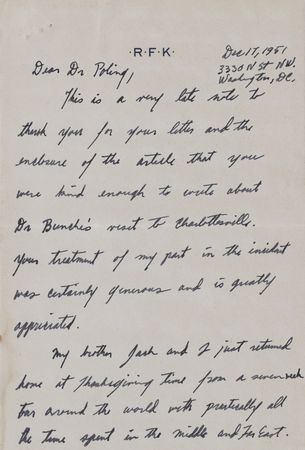 ·R·F·K·
Dec 17, 1951
3330 N St NW.
Washington, D.C.
Dear Dr Poling,
This is a very late note to
thank you for your letter and the
enclosure of the article that you
were kind enough to write about
Dr Bunche's visit to Charlottesville.
Your treatment of my part in the incident
was certainly generous and is greatly
appreciated.
My brother Jack and I just returned
home at Thanksgiving time from a seven week
tour around the world with practically all
the time spent in the middle and Far East.